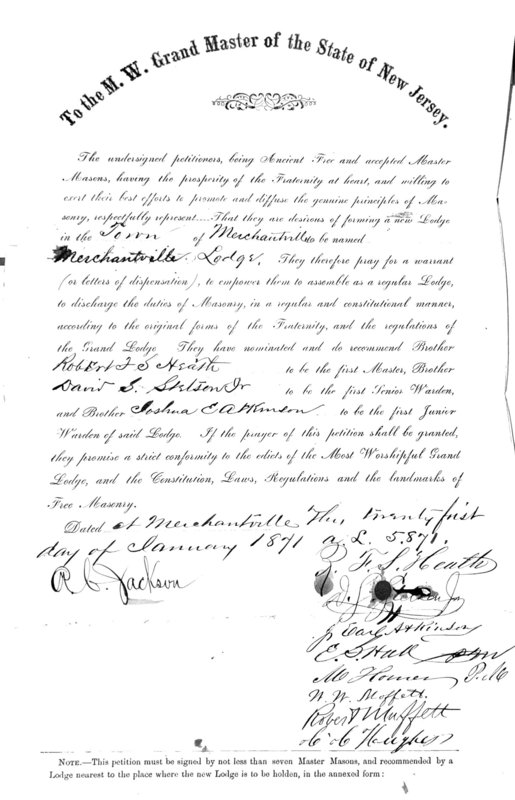 To the M. W. Grand Master of the State of New Jersey.
The undersigned petitioners, being Ancient Free and accepted Master
Masons, having the prosperity of the Fraternity at heart, and willing to
exert their best efforts to promote and diffuse the genuine principles of Ma-
sonry, respectfully represent....That they are desirous of forming a new Lodge
in the Town of Merchantville to be named
Merchantville Lodge. They therefore pray for a warrant
(or letters of dispensation), to empower them to assemble as a regular Lodge,
to discharge the duties of Masonry, in a regular and constitutional manner,
according to the original forms of the Fraternity, and the regulations of
the Grand Lodge They have nominated and do recommend Brother
Robert F S Heath to be the first Master, Brother
David S. Stetson Jr to be the first Senior Warden,
and Brother Joshua C Atkinson to be the first Junior
Warden of said Lodge. If the prayer of this petition shall be granted,
they promise a strict conformity to the edicts of the Most Worshipful Grand
Lodge, and the Constitution, Laws, Regulations and the landmarks of
Free Masonry.
Dated at Merchantville This twenty first
day of January 1871 A. L. 5.871.
R. F. S. Heath
R. C. Jackson
J Earl Atkinson
E. S. Hall
M Homer P.M
W. W. Moffett.
Robert Muffett
Hughes
NOTE.—This petition must be signed by not less than seven Master Masons, and recommended by a
Lodge nearest to the place where the new Lodge is to be holden, in the annexed form: